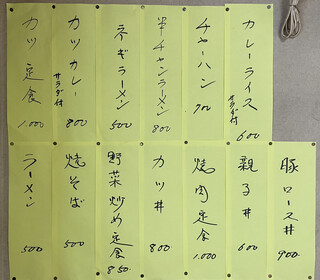 カレーライス サラダ付 600
チャーハン 700
半チャンラーメン 800
ネギラーメン 500
カツカレー サラダ付 800
カツ定食 1.000
豚ロース丼 900
親子丼 600
焼肉定食 1.000
カツ丼 800
野菜炒め定食 850
焼そば 500
ラーメン 500